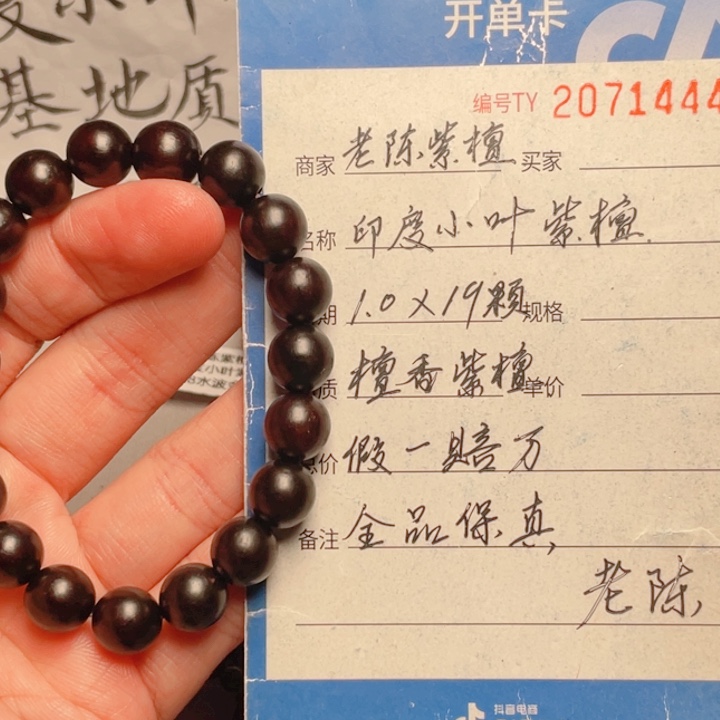 开单卡
编号TY 2071444
商家 老陈紫檀 买家
名称 印度小叶紫檀
期 1.0×19颗 规格
质 檀香紫檀 单价
总价 假一赔万
备注 全品保真
老陈
抖音电商
基地质